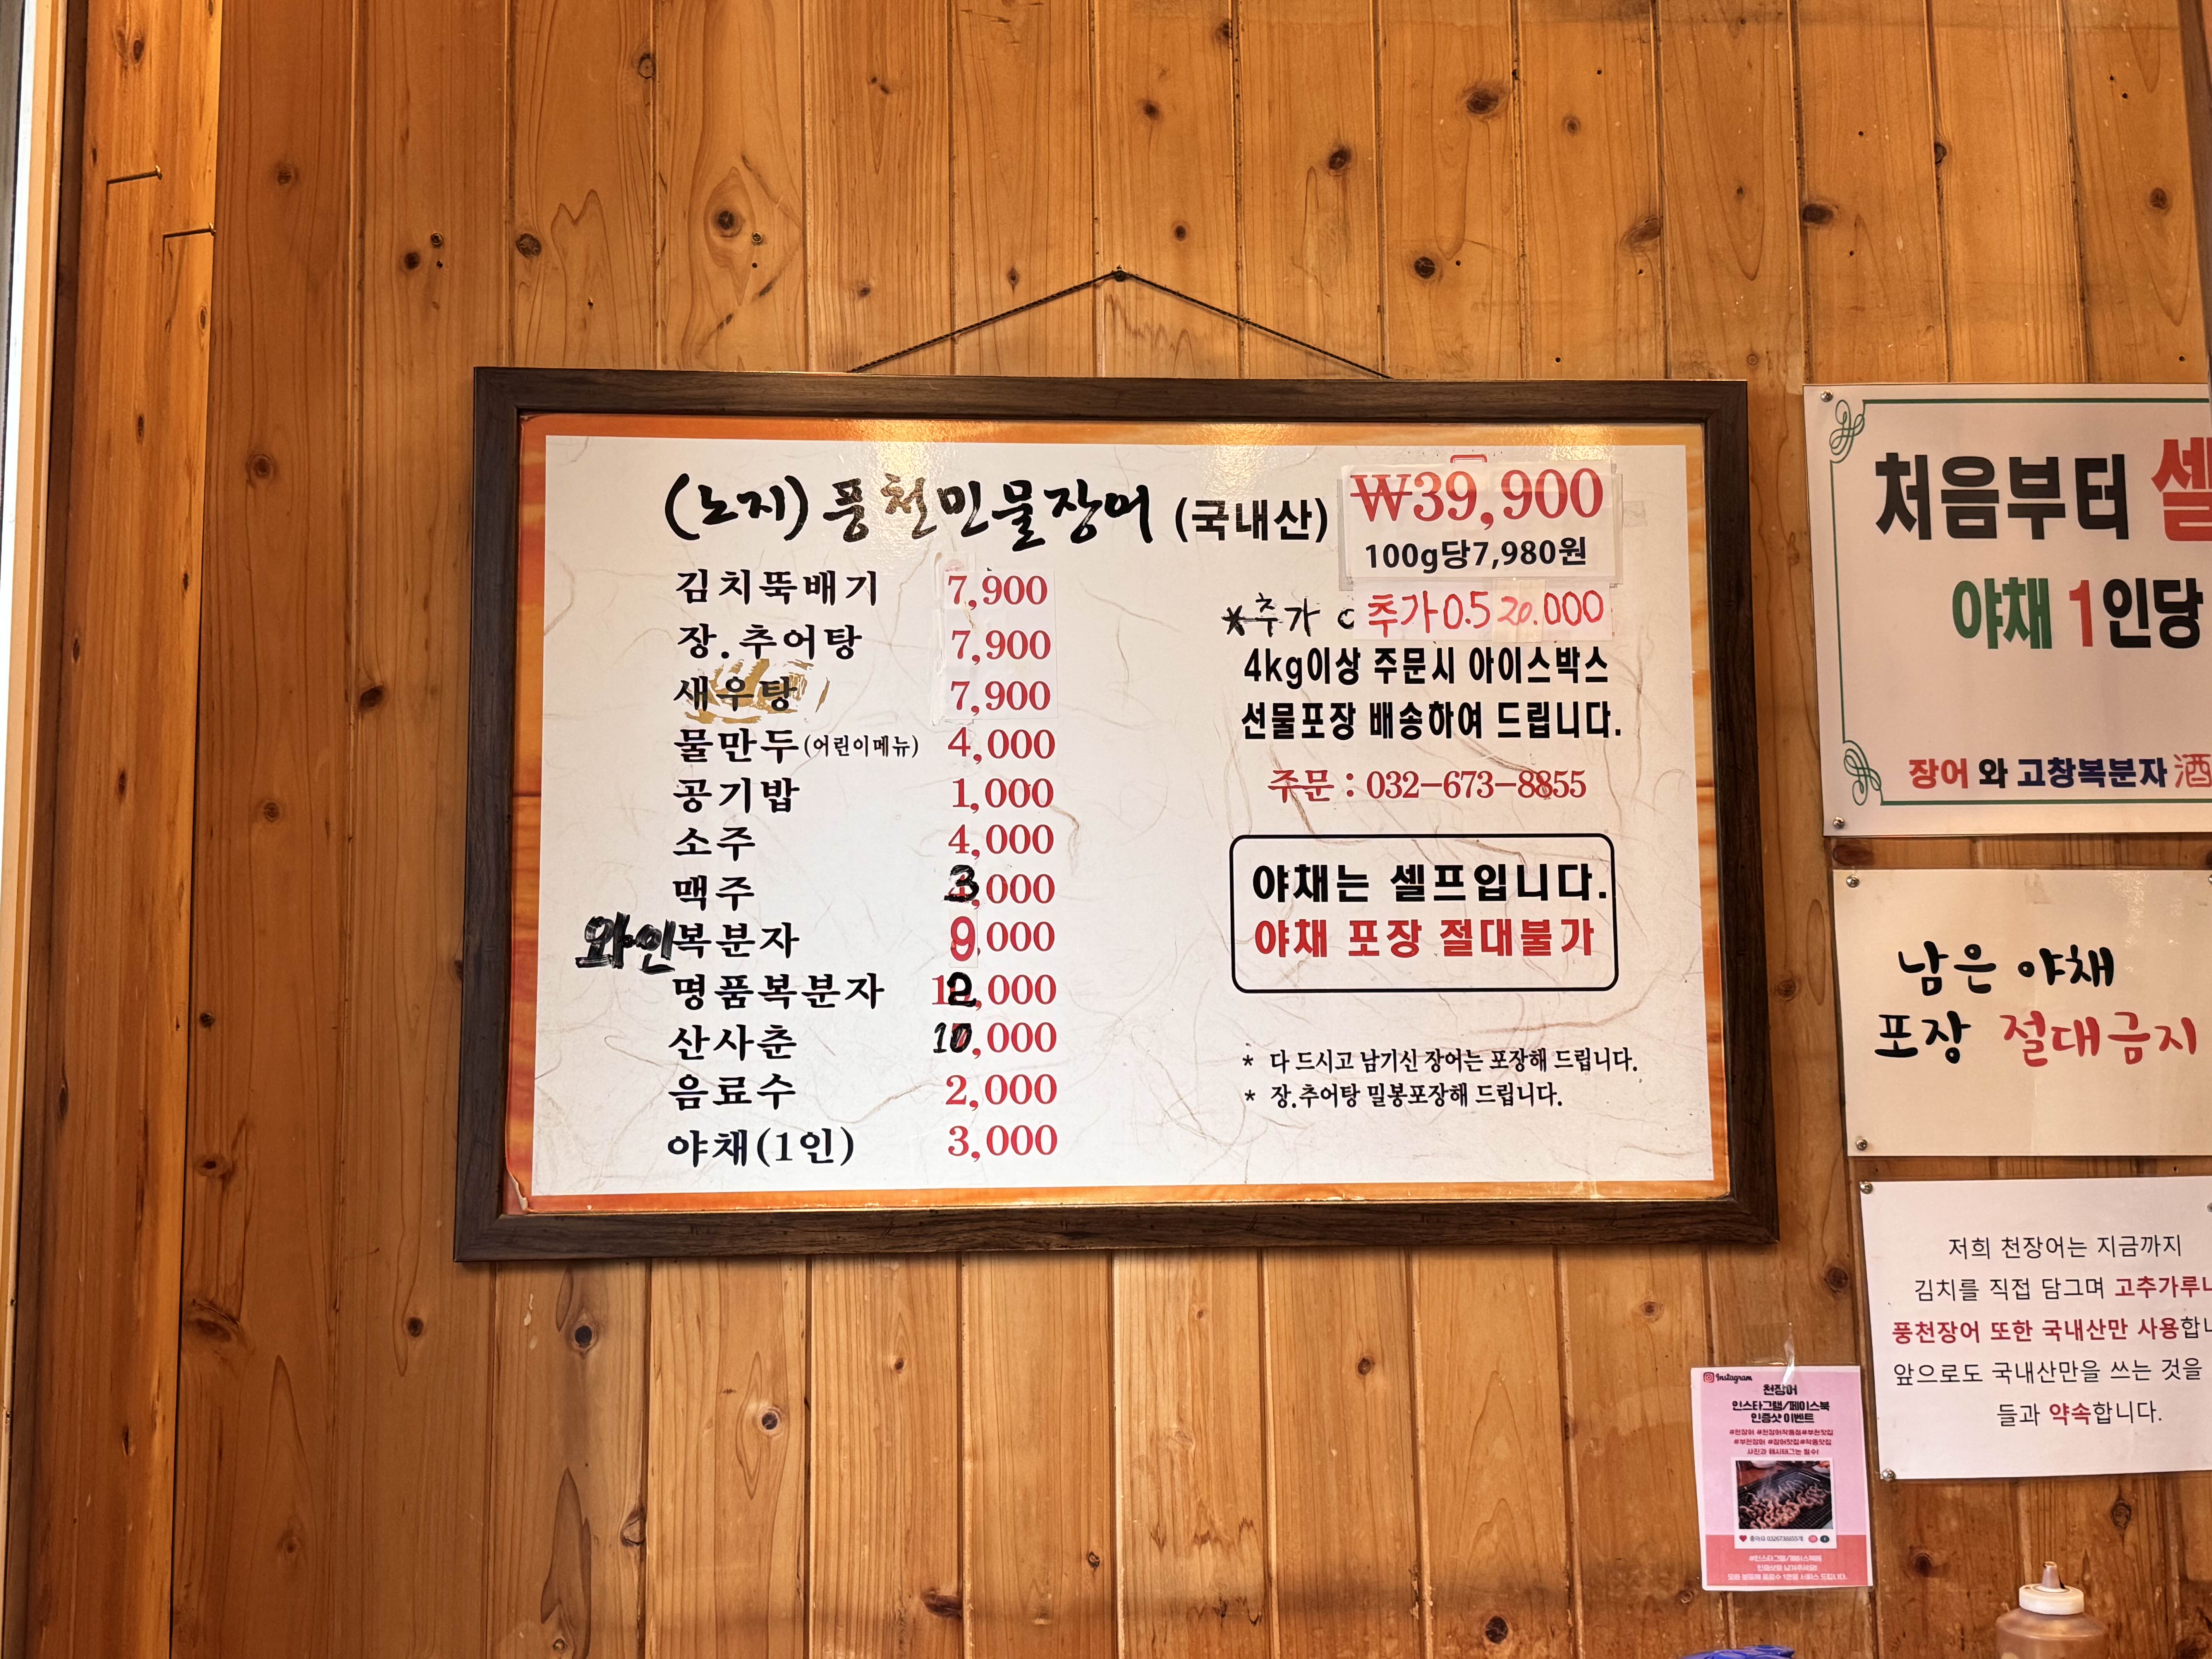 (노지) 풍천민물장어 (국내산) ₩39,900
100g당7,980원
김치뚝배기 7,900
장.추어탕 7,900
새우탕 7,900
물만두(어린이메뉴) 4,000
공기밥 1,000
소주 4,000
맥주 3,000
와인복분자 9,000
명품복분자 12,000
산사춘 10,000
음료수 2,000
야채(1인) 3,000
*추가 추가0.5 20.000
4kg이상 주문시 아이스박스
선물포장 배송하여 드립니다.
주문 : 032-673-8855
야채는 셀프입니다.
야채 포장 절대불가
* 다 드시고 남기신 장어는 포장해 드립니다.
* 장.추어탕 밀봉포장해 드립니다.
처음부터 셀
야채 1인당
장어 와 고창복분자 酒
남은 야채
포장 절대금지
저희 천장어는 지금까지
김치를 직접 담그며 고추가루
풍천장어 또한 국내산만 사용합니
앞으로도 국내산만을 쓰는 것을
들과 약속합니다.
Instagram
천장어
인스타그램/페이스북
인증샷 이벤트
#천장어 #천장어작동점#부천맛집
#부천장어 #장어맛집#작동맛집
사진과 해시태그는 필수!
#인스타그램/페이스북에